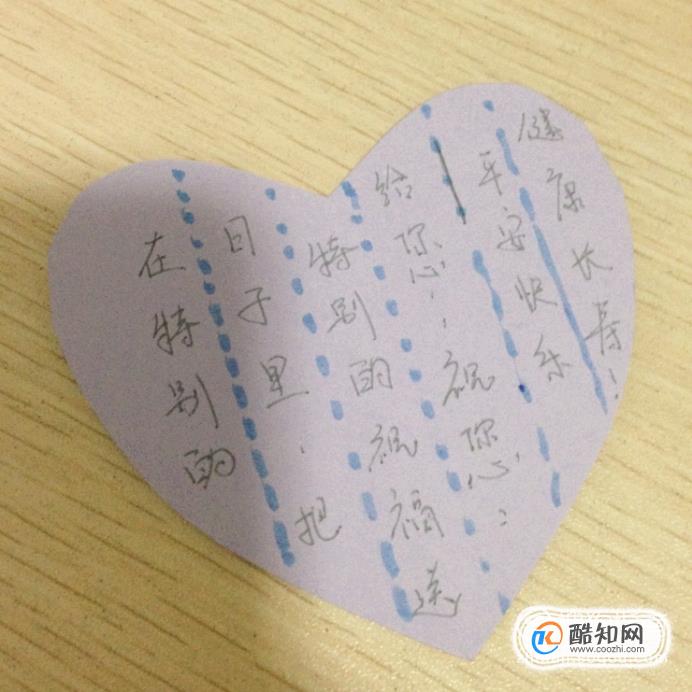 在特别的
日子里，把
特别的祝福送
给您，祝您：
平安快乐
健康长寿！
酷知网
www.coozhi.com